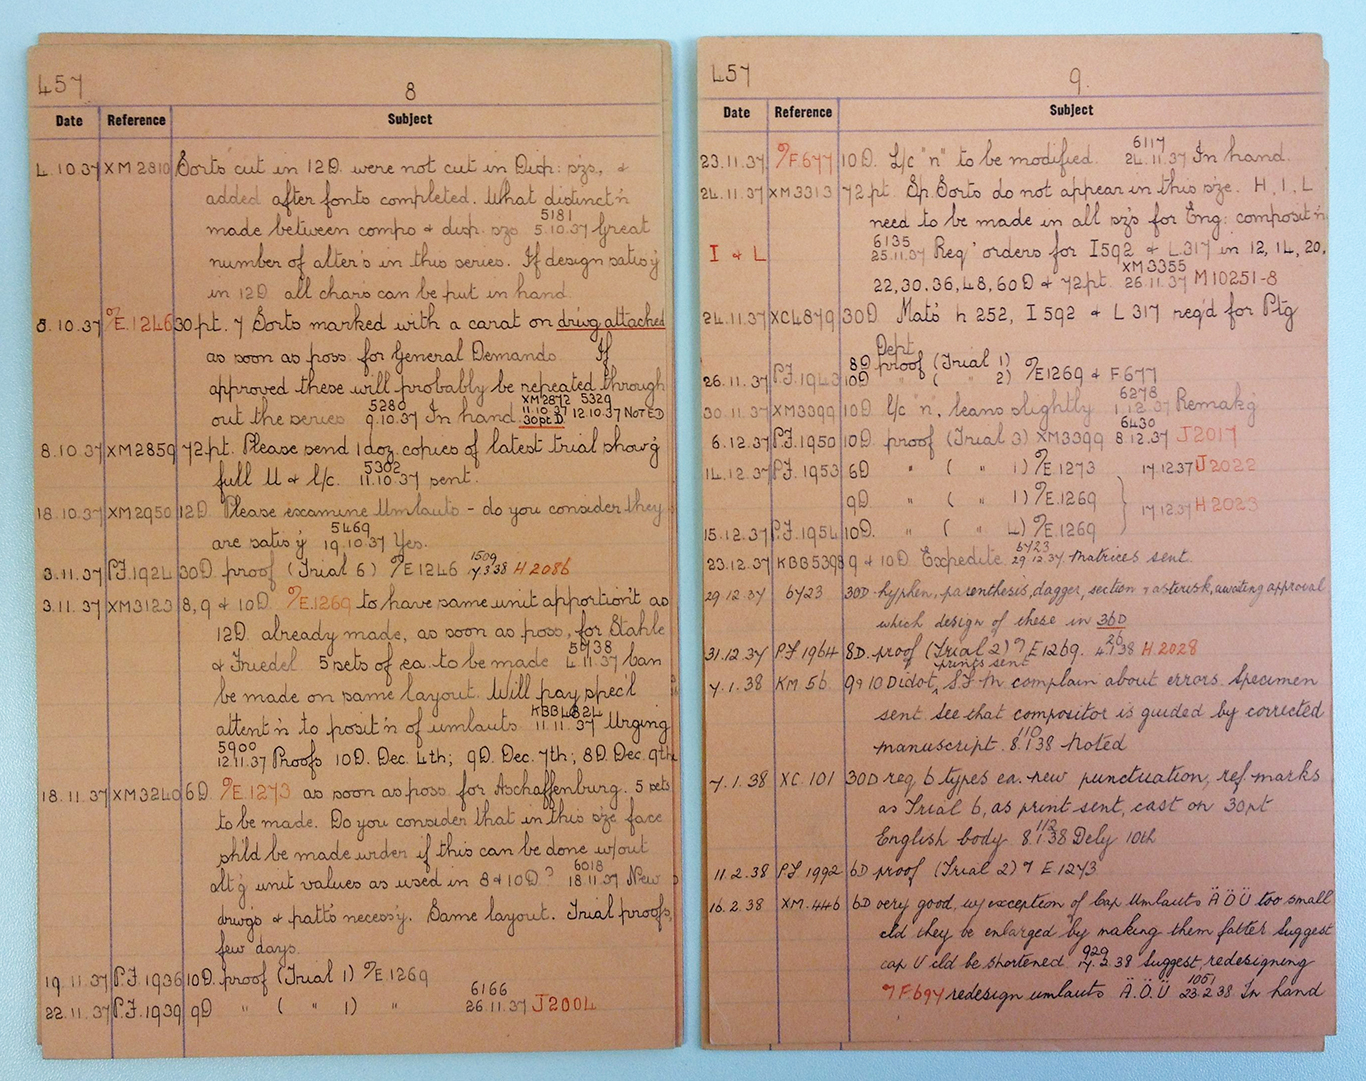 457
8
Date Reference Subject
4.10.37 XM2810 Sorts cut in 12D. were not cut in Disp: szs, &
added after fonts completed. What distinct'n
5181
made between compo & disp. szs 5.10.37 Great
number of alter's in this series. If design satis'y
in 12D. all chars can be put in hand.
5.10.37 %E.1246 30pt. 7 Sorts marked with a carat on drwg attached
as soon as poss. for General Demands. If
approved these will probably be repeated through
5280 XM2872 5329
out the series 9.10.37 In hand. 11.10.37 12.10.37 NOTED
30pt D
8.10.37 XM2859 72pt. Please send 1 doz. copies of latest trial show'g
5302
full U & l/c. 11.10.37 sent.
18.10.37 XM2950 12D. Please examine Umlauts - do you consider they
5469
are satis'y 19.10.37 Yes.
1509
3.11.37 P.F.1924 30D. proof (Trial 6) %E1246 7.3.38 H2086
3.11.37 XM3123 8, 9 & 10D. %E.1269 to have same unit apportion't as
12D. already made, as soon as poss, for Stahle
5738
& Friedel. 5 sets of ea. to be made 4.11.37 Can
be made on same layout. Will pay spec'l
KBB4824
attent'n to posit'n of umlauts. 11.11.37 Urging
5900
12.11.37 Proofs 10D. Dec. 4th; 9D. Dec. 7th; 8D. Dec. 9th
18.11.37 XM3240 6D. %E.1273 as soon as poss. for Aschaffenburg. 5 sets
to be made. Do you consider that in this size face
sh'ld be made wider if this can be done w/out
6018
alt'g unit values as used in 8 & 10D? 18.11.37 New
drwgs & patts necess'y. Same layout. Trial proofs,
few days.
19.11.37 P.F.1936 10D. proof (Trial 1) %E1269
6166
22.11.37 P.F.1939 9D " ( " 1) " 26.11.37 J2004
457
9.
Date Reference Subject
6117
23.11.37 %F.677 10D. L/c "n" to be modified. 24.11.37 In hand.
24.11.37 XM3313 72pt. Sp. Sorts do not appear in this size. H, I, L
need to be made in all sz's for Eng: composit'n
6135
I & L 25.11.37 Req' orders for I592 & L317 in 12, 14, 20,
XM3355
22, 30, 36, 48, 60D & 72pt. 26.11.37 M10251-8
24.11.37 XC4879 30D Mats h 252, I 592 & L 317 req'd for Ptg
Dept.
8D proof (Trial 1)
26.11.37 P.F.1943 10D " ( " 2) %E1269 & F677
6278
30.11.37 XM3399 10D l/c "n", leans slightly 1.12.37 Remak'g
6430
6.12.37 P.F.1950 10D. proof (Trial 3) XM3399 8.12.37 J2017
14.12.37 P.F.1953 6D " ( " 1) %E.1273 17.12.37 J2022
9D " ( " 1) %E.1269
17.12.37 H2023
15.12.37 P.F.1954 10D. " ( " 4) %E1269
6723
23.12.37 KBB5398 9 & 10D. Expedite 29.12.37 Matrices sent.
29.12.37 6723 30D hyphen, parenthesis, dagger, section & asterisk, awaiting approval
which design of these in 36D
26
31.12.37 P.F 1964 8D. proof (Trial 2) % E1269. 4.1.38 H.2028
prints sent
7.1.38 KM 56 9 & 10 Didot, S.F-M complain about errors. Specimen
sent. See that compositor is guided by corrected
110
manuscript. 8.1.38 Noted
7.1.38 XC.101 30D req. 6 types ea. new punctuation, ref. marks
as Trial 6, as print sent, cast on 30pt
112
English body. 8.1.38 Dely 10th
11.2.38 P.F 1992 6D proof (Trial 2) % E1273
16.2.38 XM.446 6D very good, w/ exception of Cap Umlauts Ä Ö Ü too small
cld they be enlarged by making them fatter Suggest
929
cap U cld be shortened. 17.2.38 Suggest redesigning
1051
% F.697 redesign umlauts Ä.Ö.Ü 23.2.38 In hand